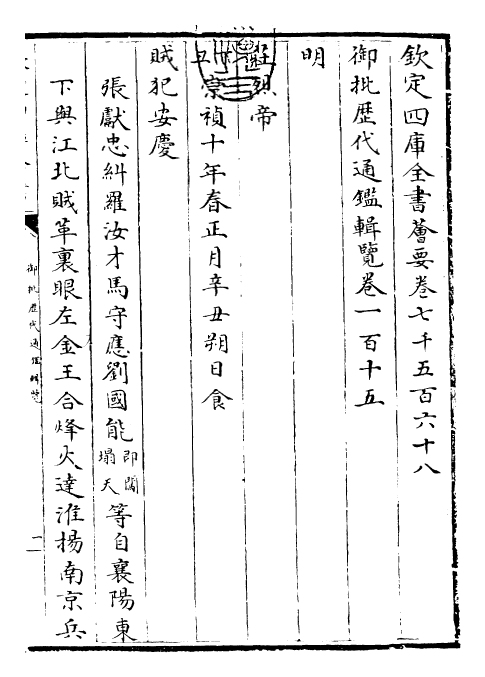 欽定四庫全書薈要卷七千五百六十八
御批歴代通鑑輯覽卷一百十五
明
莊烈帝
丁丑崇禎十年春正月辛丑朔日食
賊犯安慶
張獻忠糾羅汝才馬守應劉國能即闖塌天等自襄陽東
下與江北賊革裏眼左金王合烽火達淮揚南京兵
御批歴代通鑑輯覽